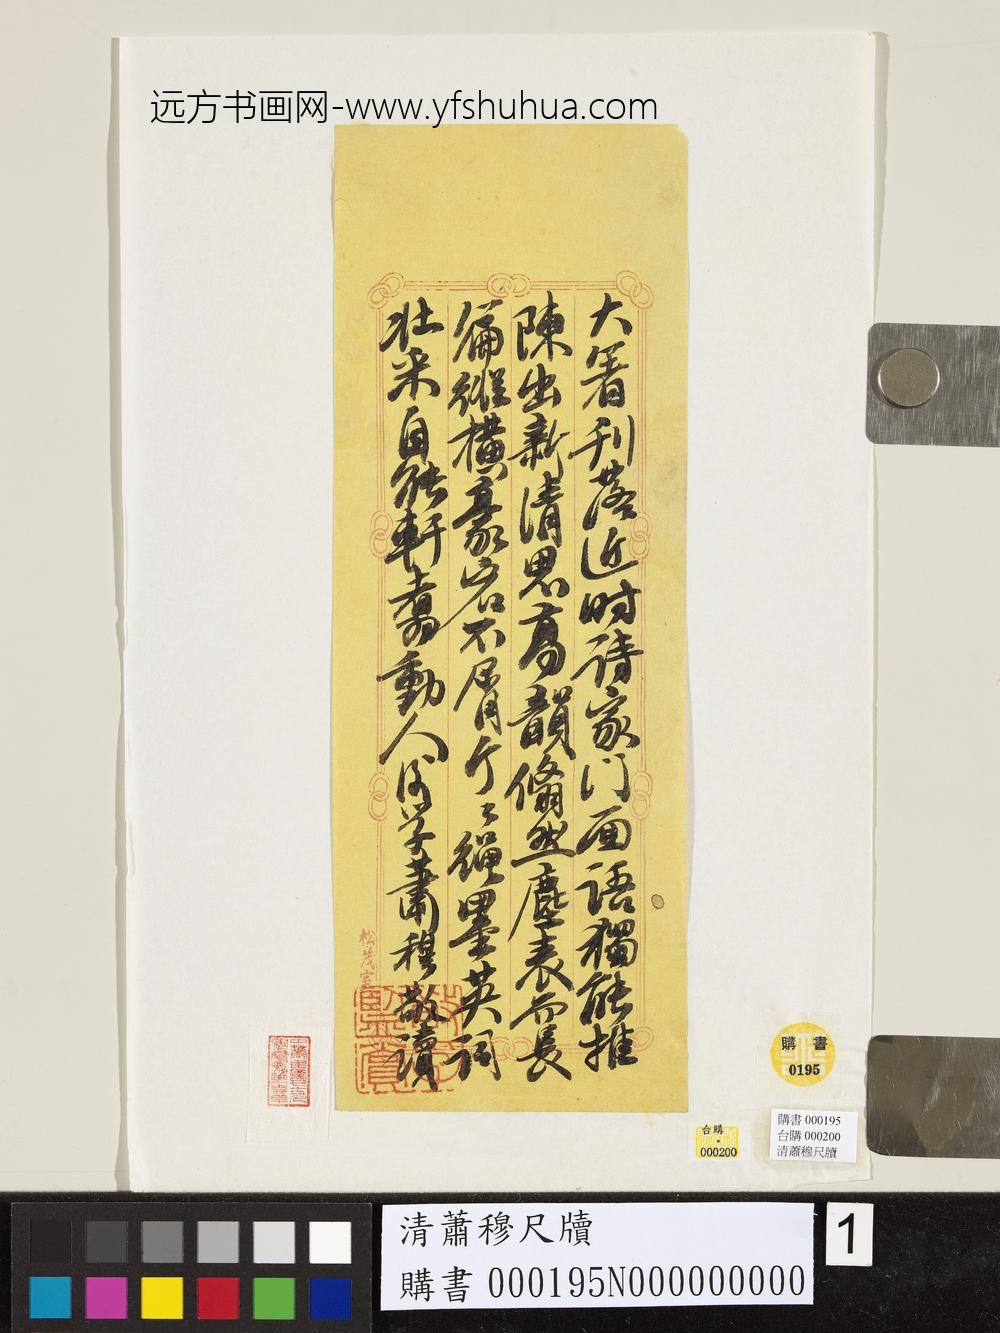 远方书画网-www.yfshuhua.com
大著刊落近时诗家门面语獨能推
陳出新清思高韻翛然塵表而長
篇縱橫豪宕不屑屑〻繩墨英词
壮采自能軒翥動人後学蕭穆敬讀
松茂室
購書
0195
台購
000200
購書 000195
台購 000200
清蕭穆尺牘
清蕭穆尺牘
購書 000195N000000000
1